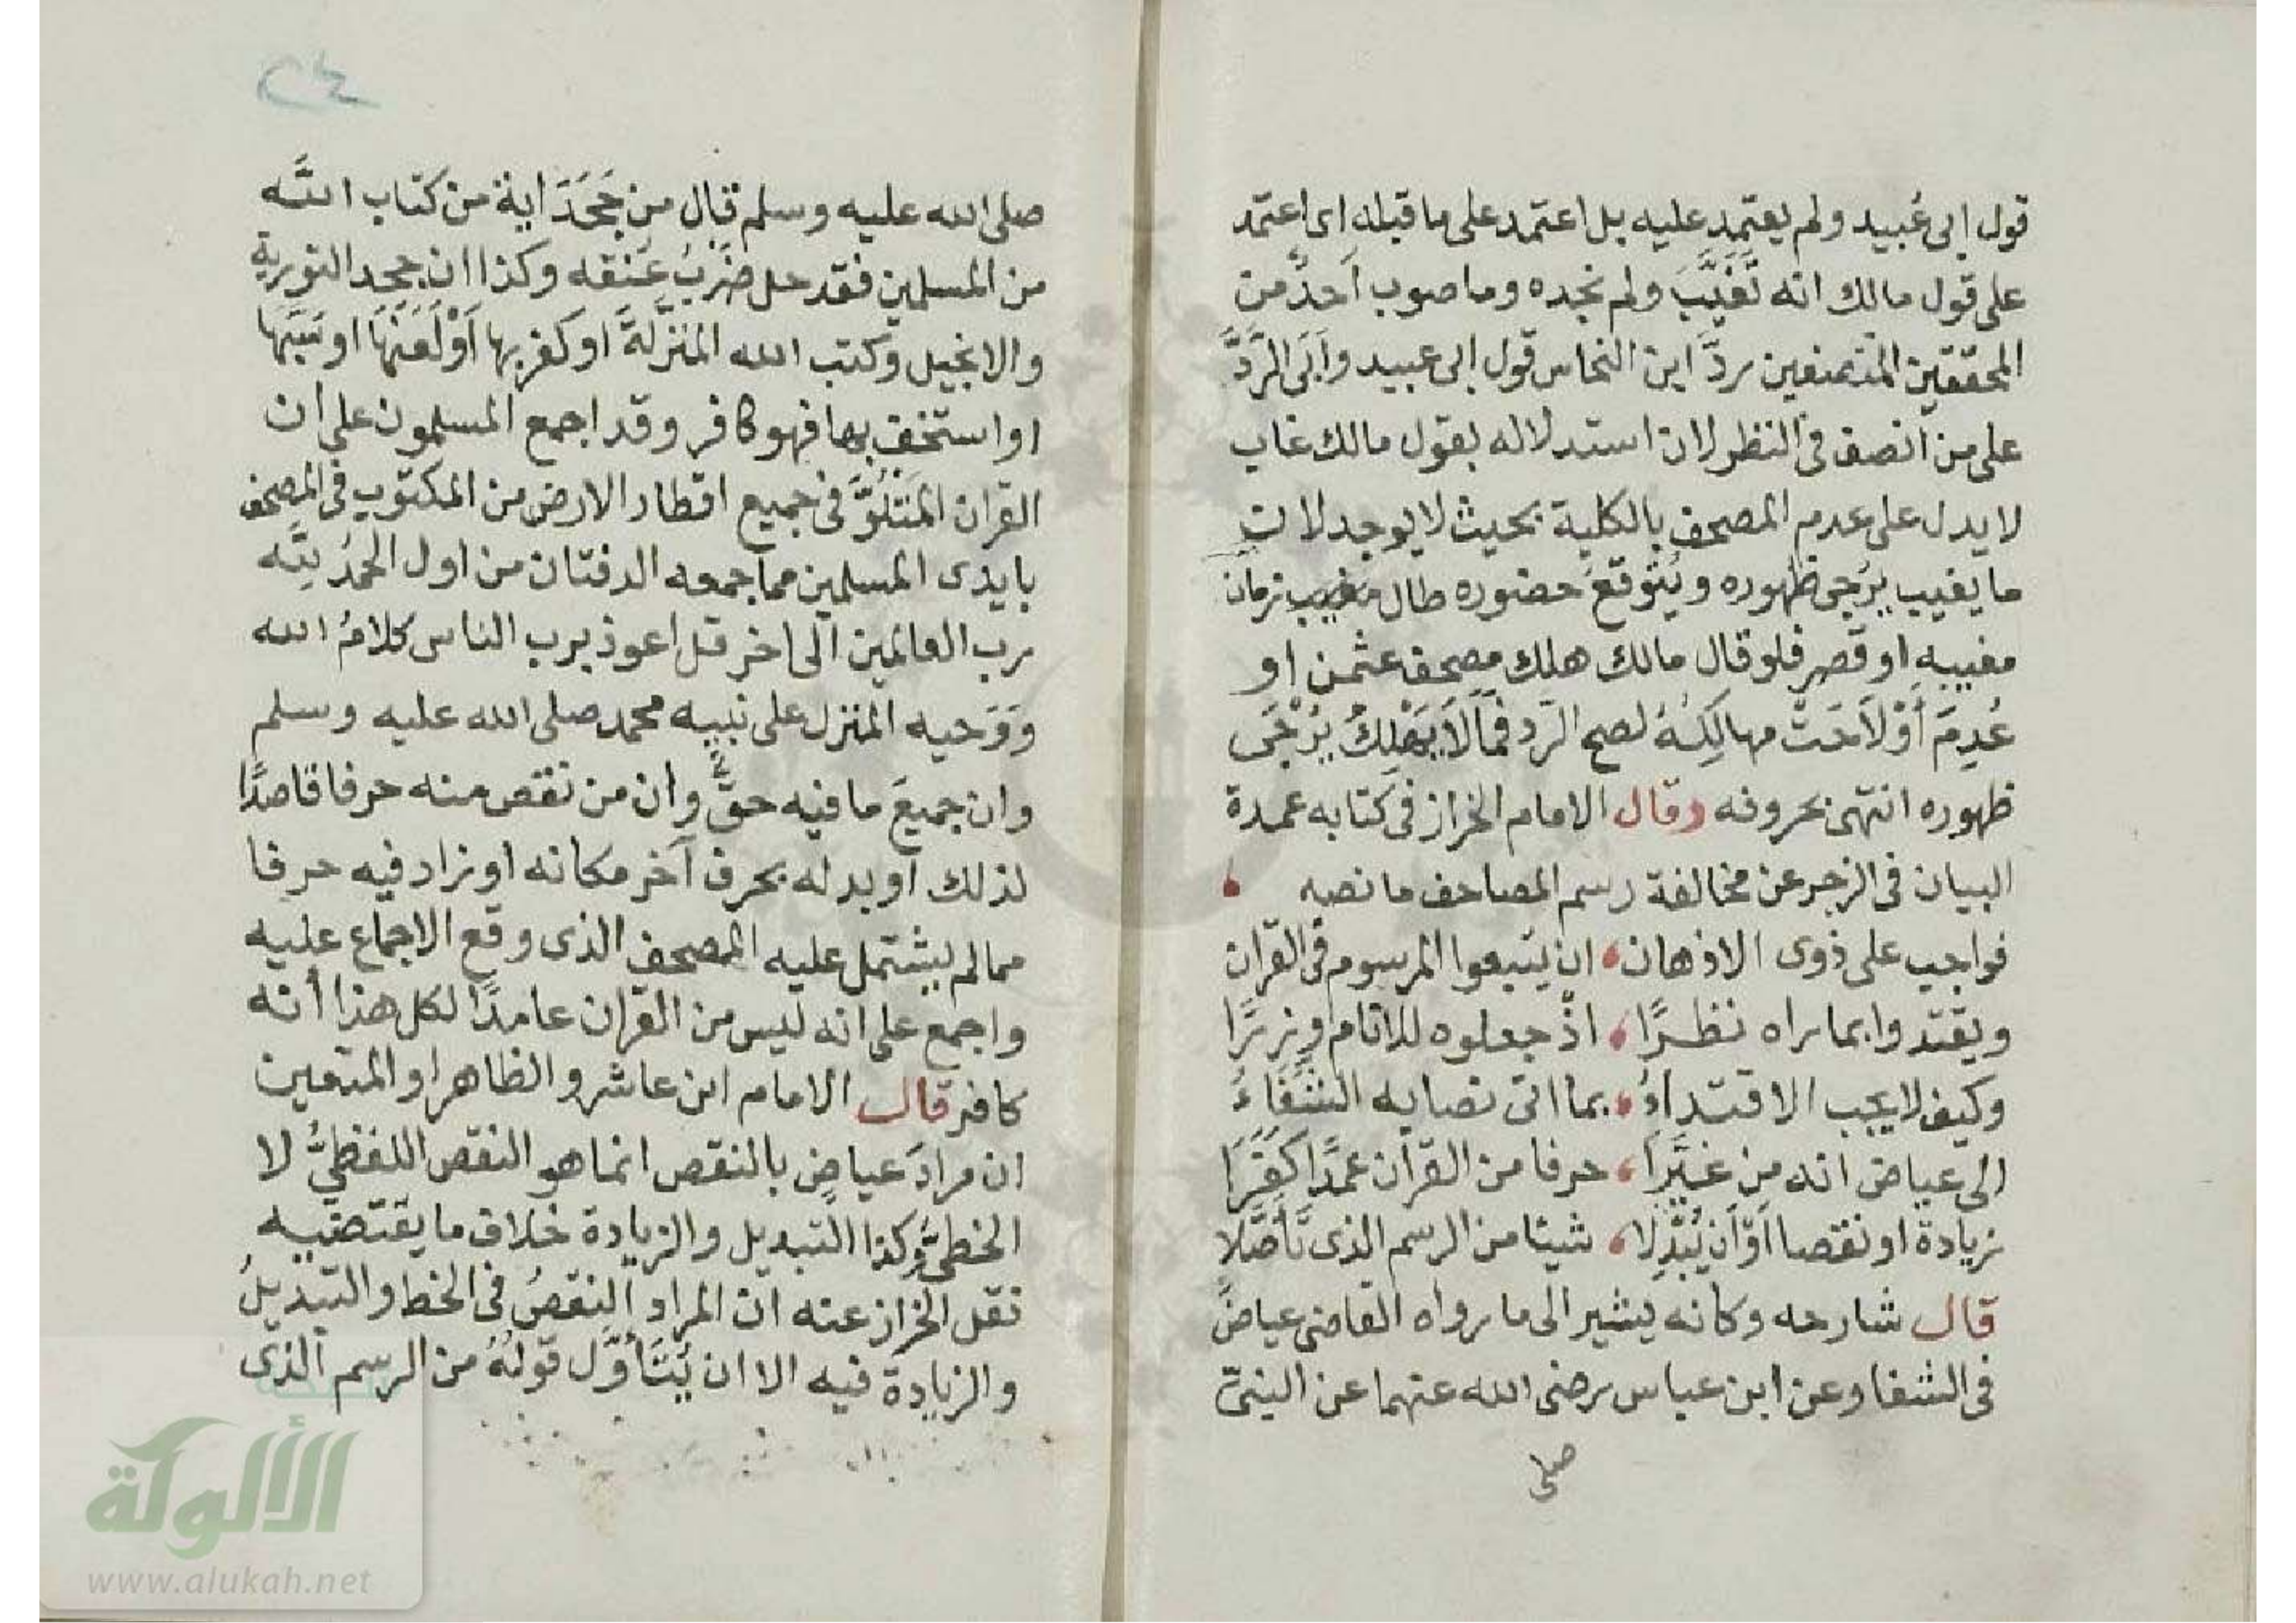 قول ابى عُبيد ولم يعتمد عليه بل اعتمد على ما قبله اى اعتمد
على قول مالك انه تَغَيَّبَ ولم نجده وما صوب اَحدٌ من
المحققين المنصفين ردَّ ابن النحاس قول ابى عبيد وَاَبَى الرَّدَّ
على من انصف فى النظر لان استدلاله بقول مالك غاب
لا يدل على عدم المصحف بالكلية بحيث لا يوجد لان
ما يغيب يرُجى ظهوره ويُتوقع حضوره طال زمان
مغيبه او قصر فلو قال مالك هلك مصحف عثمن او
عُدِمَ أَوْلاَحَتْ مهالِكهُ لصح الرّد فمَالاَ يَهْلِكُ يُرْجَى
ظهوره انتهى بحروفه وقال الامام الخراز فى كتابه عمدة
البيان فى الزجر عن مخالفة رسم المصاحف ما نصه
فواجب على ذوى الاذهان ان يتبعوا المرسوم فى القران
ويقتدوا بما راه نظـرًا اذ جعلوه للانام وزرًا
وكيف لا يجب الاقتداءُ بما اتى نصا به الشِّفَاءُ
الى عياض انه من غيَّرَا حرفا من القرآن عمدًا كَفَرَا
زيادة او نقصا اَوْ اَن يُبَدِّلا شيئا من الرسم الذى تَأَصَّلا
قال شارحه وكانه يشير الى ما رواه القاضى عياضٌ
فى الشفا وعن ابن عباس رضى الله عنهما عن النبىّ
صلى
٢٤
صلى الله عليه وسلم قال من جَحَدَ اية من كتاب اللَّه
من المسلمين فقد حل ضَرْبُ عُنقه وكذا ان جحد التورية
والانجيل وكتب الله المنزَّلةَ او كفر بها اَوْ لَعَنَهَا او سَبَّها
او استخف بها فهو كافر وقد اجمع المسلمون على ان
القران المَتْلُوَّ فى جميع اقطار الارض من المكتوب فى المصحف
بايدى المسلمين مما جمعه الدفتان من اول الحَمْدُ لِلَّه
رب العالمين الى اخر قل اعوذ برب الناس كلامُ الله
وَوَحيه المنزل على نبيه محمد صلى الله عليه وسلم
وان جميعَ ما فيه حقٌّ وان من نقص منه حرفا قاصدًا
لذلك او بدله بحرف آخر مكانه او زاد فيه حرفا
مما لم يشتمل عليه المصحف الذى وقع الاجماع عليه
واجمع على انه ليس من القران عامدًا لكل هذا أنه
كافر قال الامام ابن عاشر والظاهر او المتعين
ان مرادَ عياضٍ بالنقص انما هو النقص اللفظىُّ لا
الخطىُّ وكذا التبديل والزيادة خلاف ما يقتضيه
نقل الخراز عنه ان المراد النقصُ فى الخط والتبديلُ
والزيادة فيه الا ان يُتَأوَّل قولُهُ من الرسم الذى
الألوكة
www.alukah.net